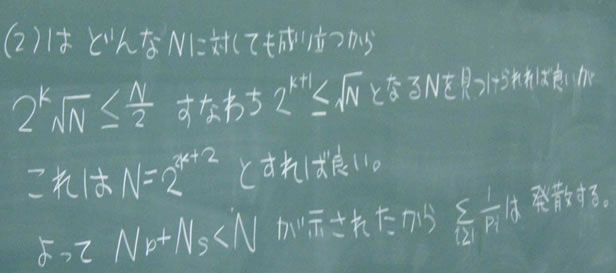 (2)は どんなNに対しても成り立つから
2^k √N ≤ N/2 すなわち 2^{k+1} ≤ √N となるNを見つけられれば良いが
これは N=2^{2k+2} とすれば良い。
よって N_b+N_s<N が示されたから Σ_{i≥1} 1/p_i は 発散する。